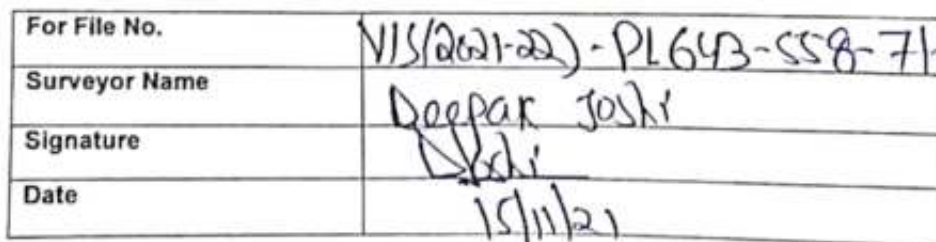 For File No. VIS(2021-22)-PL643-558-71-
Surveyor Name Deepak Joshi
Signature DJoshi
Date 15/11/21